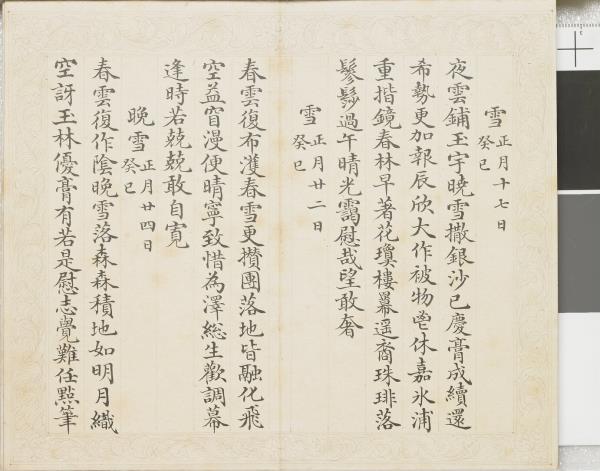 雪 正月十七日
癸巳
夜雲鋪玉宇曉雪撒銀沙已慶膏成續還
希勢更加報辰欣大作被物休嘉氷浦
重揩鏡春林早著花瓊樓羃遥裔珠琲落
鬖髿過午晴光靄慰哉望敢奢
雪 正月廿二日
癸巳
春雲復布濩春雪更攢團落地皆融化飛
空益窅漫便晴寧致惜為澤総生歡調幕
逢時若兢兢敢自寬
晚雪 正月廿四日
癸巳
春雲復作陰晚雪落森森積地如明月織
空訝玉林優膏有若是慰志覺難任點筆